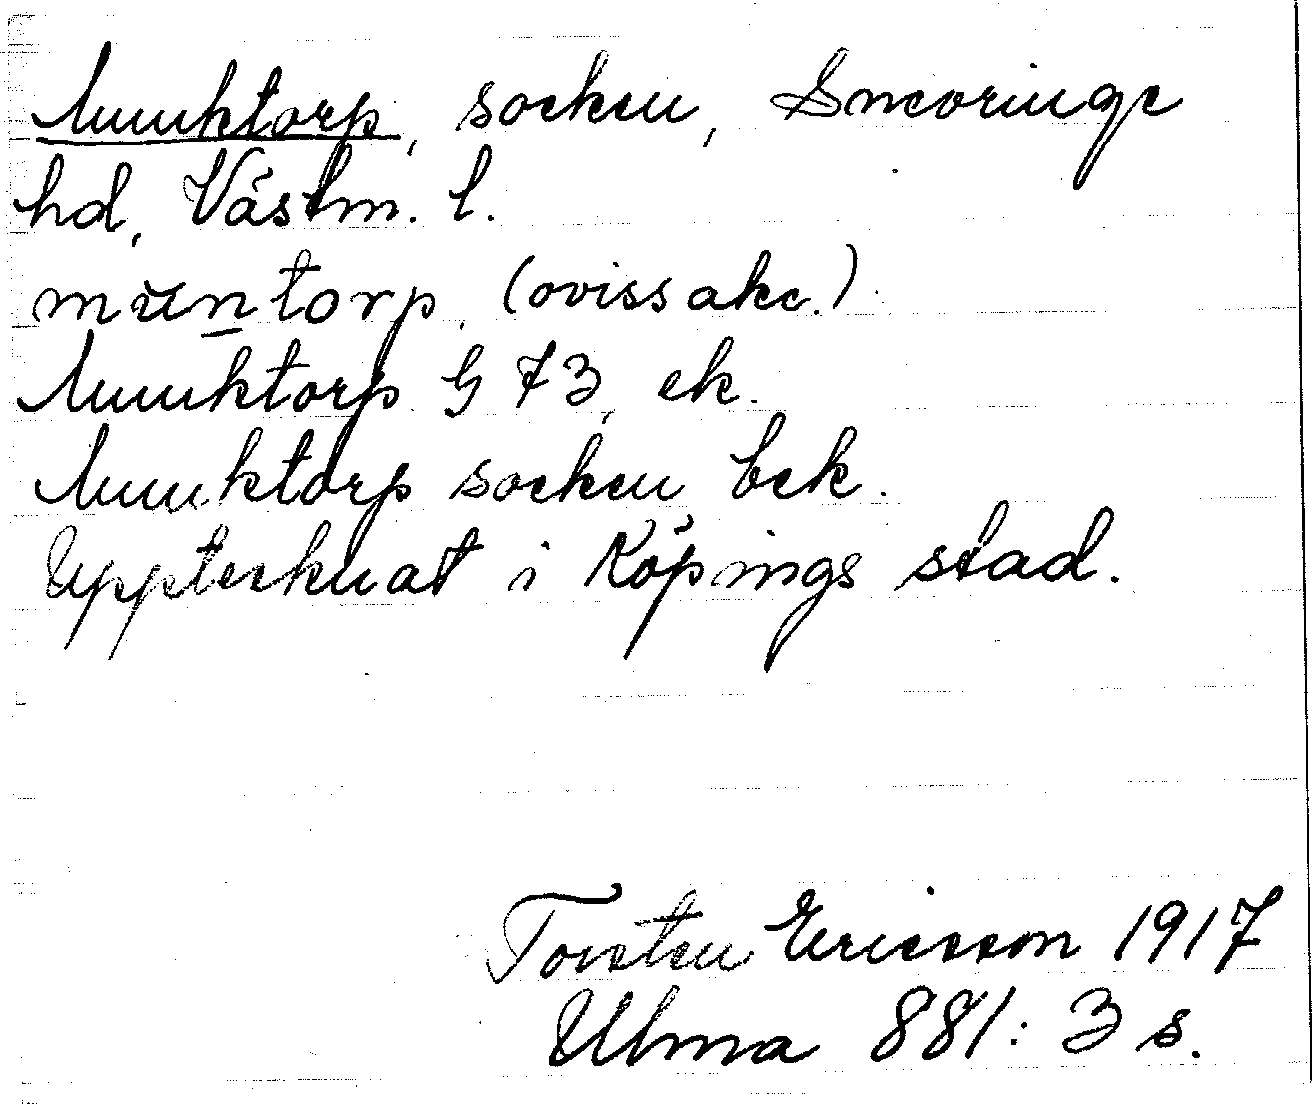 Munktorp, socken, Snevringe
hd, Västm. l.
mŭn̲torp. (oviss akc.).
Munktorp G 73, ek.
Munktorp socken bek.
Uppteknat i Köpings stad.
Torsten Ericsson 1917
Ulma 881: 3 s.